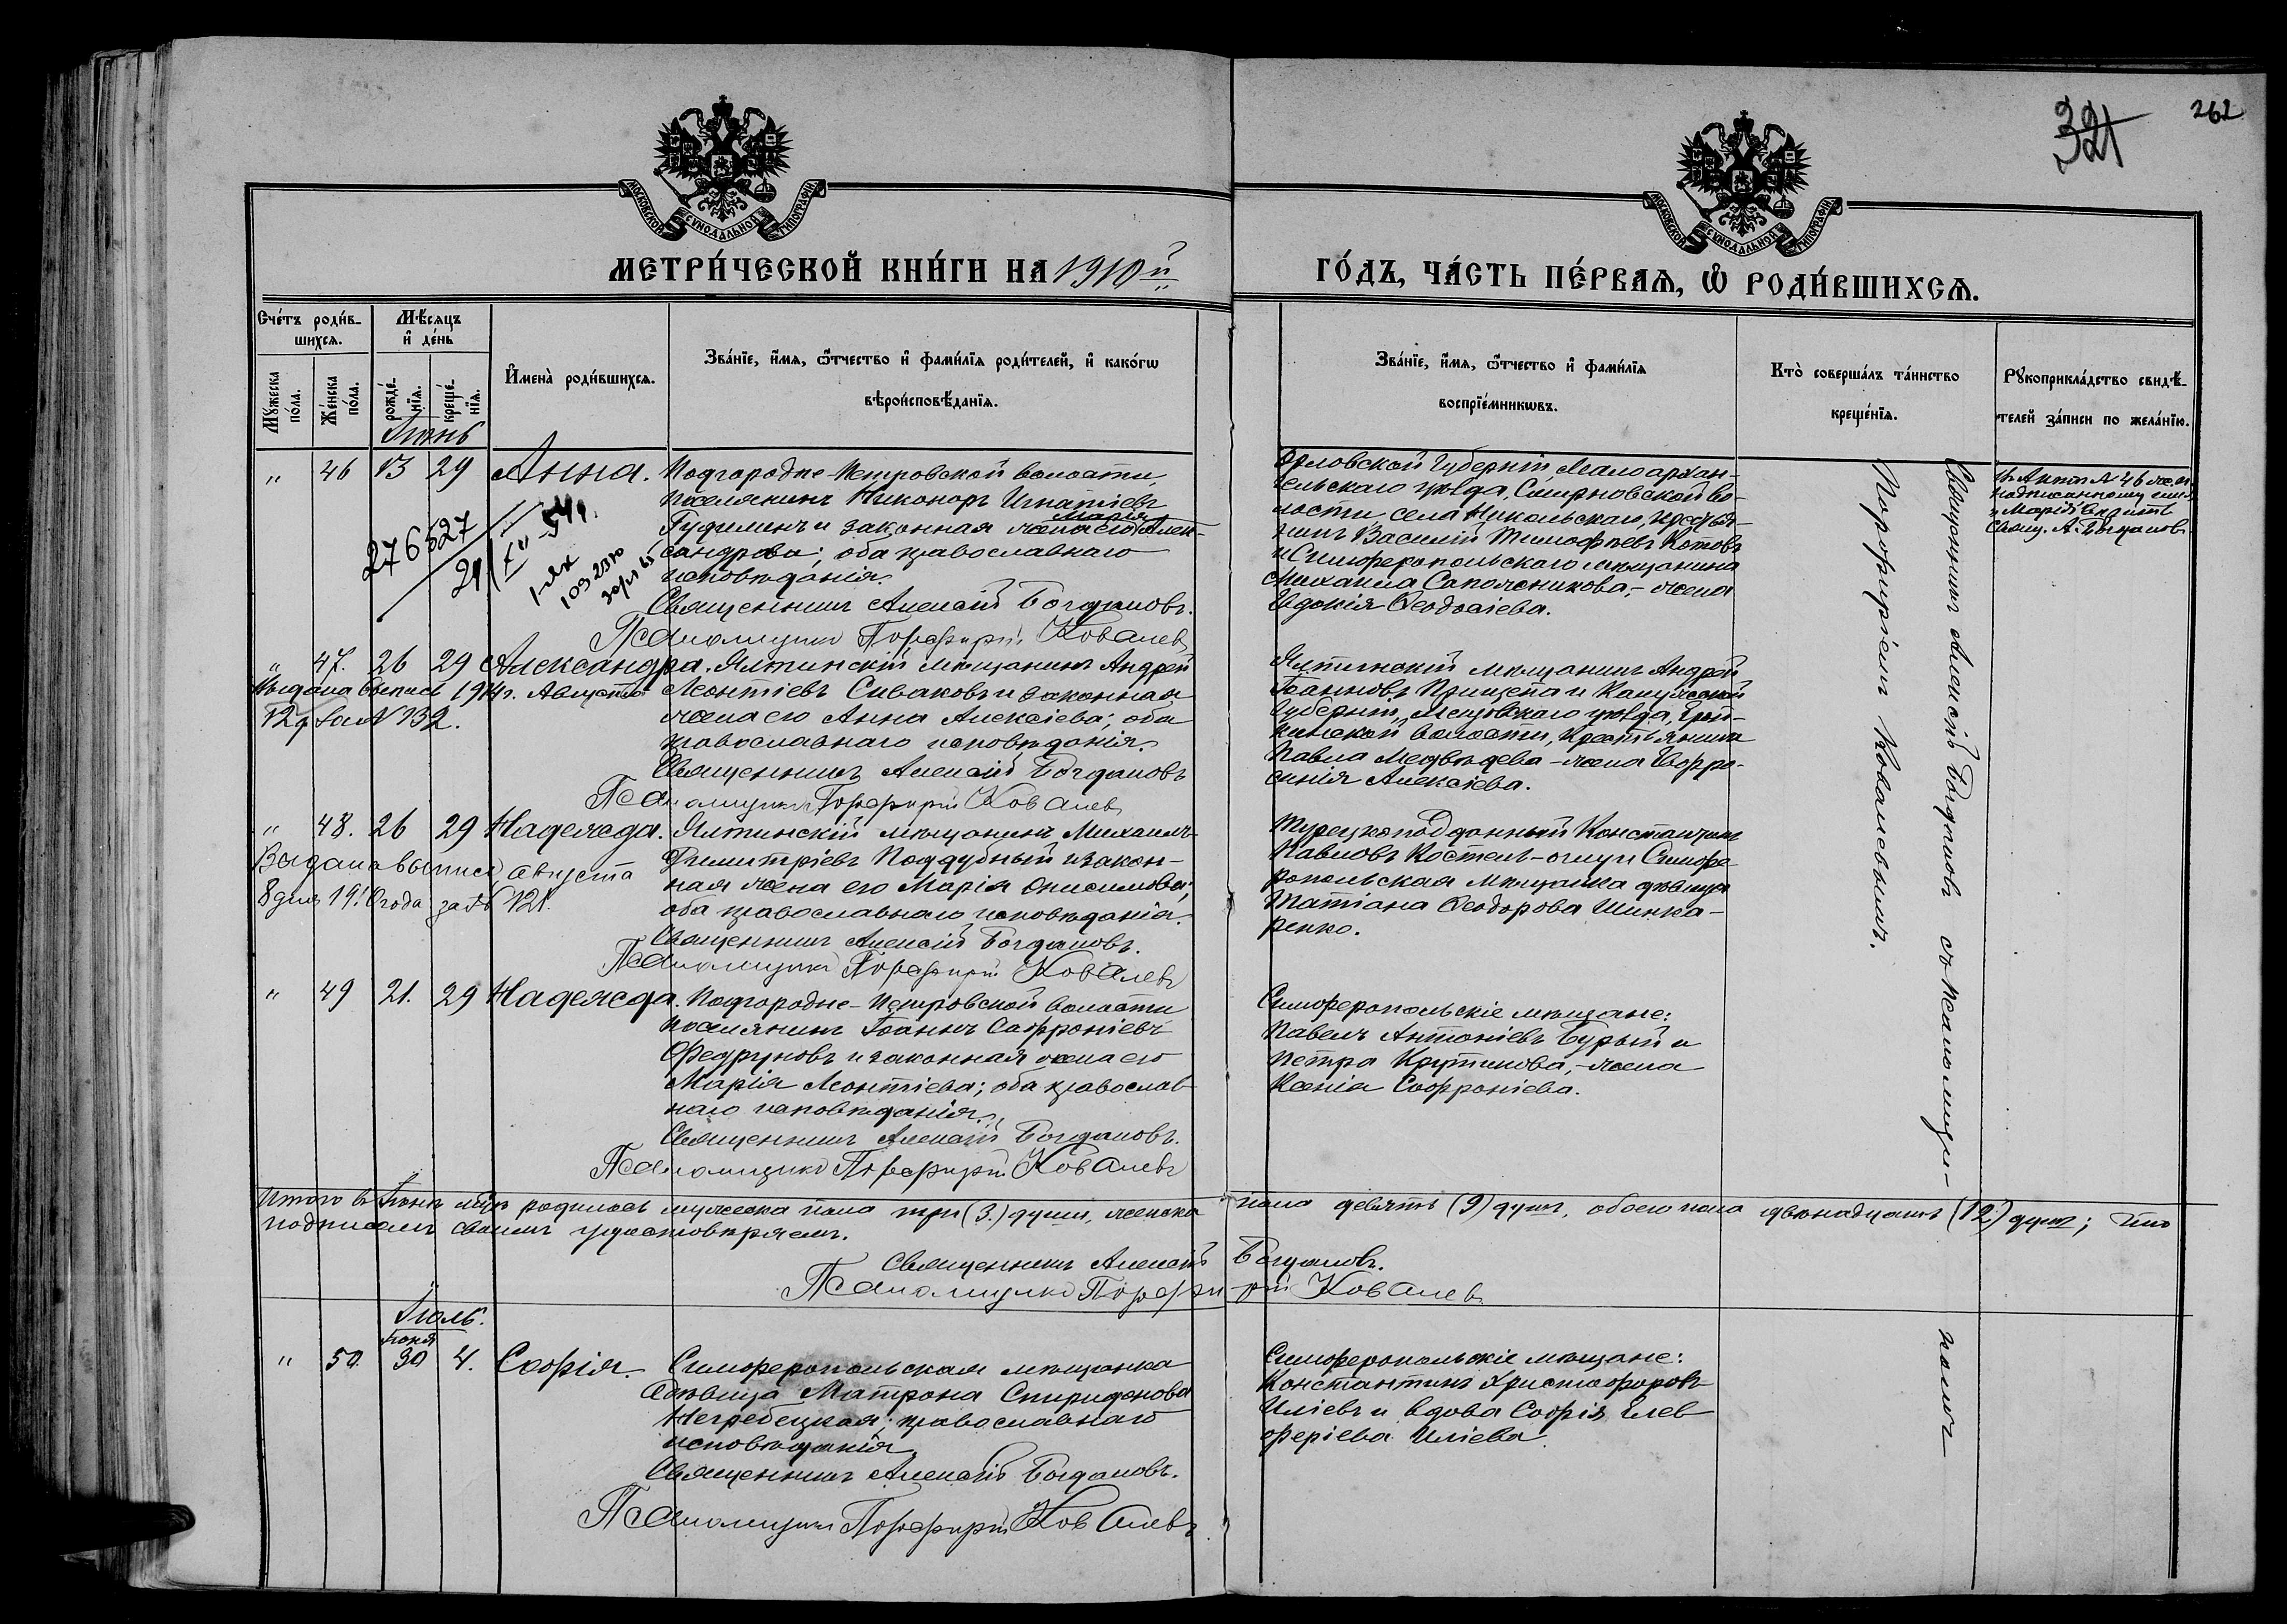 321
262
МОСКОВСКОЙ СѴНОДАЛЬНОЙ ТИПОГРАФІИ
МОСКОВСКОЙ СѴНОДАЛЬНОЙ ТИПОГРАФІИ
МЕТРИ́ЧЕСКОЙ КНИ́ГИ НА 1910й
ГО́ДЪ, ЧА́СТЬ ПЕ́РВАѦ, Ѡ҆ РОДИ́ВШИХСѦ.
Сче́тъ роди́в-
шихсѧ.
Мѣ́сѧцъ
и҆ де́нь
Мꙋ́жеска по́ла.
Же́нска по́ла.
рожде́-
нїѧ.
креще́-
нїѧ.
И҆мена̀ роди́вшихсѧ.
Зва́нїе, и҆́мѧ, ѻ҆́тчество и҆ фами́лїѧ роди́телей, и҆ како́гѡ
вѣроисповѣ́данїѧ.
Зва́нїе, и҆́мѧ, ѻ҆́тчество и҆ фами́лїѧ
воспрїе́мникѡвъ.
Кто̀ соверша́лъ та́инство
креще́нїѧ.
Рꙋкоприкла́дство свидѣ́-
телей за́писи по жела́нїю.
Іюнь
" 46 13 29 Анна. Подгородне-Петровской волости,
поселянинъ Никоноръ Игнатіевъ
Гудиминъ и законная жена его Марія Алек-
сандрова; оба православнаго
исповѣданія.
Священникъ Алексій Богдановъ.
Псаломщикъ Порфирій Ковалевъ
276527
Орловской Губерніи Малоархан-
гельскаго уѣзда, Смирновской во-
лости села Никольскаго, крестья-
нинъ Василій Тимофѣевъ Котовъ
и Симферопольскаго мѣщанина
Михаила Сапожникова,- жена
Евдокія Ѳеодосіева.
Священникъ Алексій Богдановъ съ псаломщи-
Порфиріемъ Ковалевымъ.
Къ Актъ № 46 жен.
надписанному имя
"Марія" вѣрить
Свящ. А. Богдановъ
" 47. 26 29 Александра. Ялтинскій мѣщанинъ Андрей
Леонтіевъ Сиваковъ и законная
жена его Анна Алексіева; оба
православнаго исповѣданія.
Священникъ Алексій Богдановъ
Псаломщикъ Порфирій Ковалевъ
Выдана выпись 1914г. Августа
12 д за № 132.
Ялтинскій мѣщанинъ Андрей
Іоанновъ Прищепа и Калужской
Губерніи, Мещовскаго уѣзда,
волости, крестьянина
Павла Медвѣдева - жена Евфро-
синія Алексіева.
" 48. 26 29 Надежда. Ялтинскій мѣщанинъ Михаилъ
Димитріевъ Поддубный и закон-
ная жена его Марія Онисимова;
оба православнаго исповѣданія.
Священникъ Алексій Богдановъ.
Псаломщикъ Порфирій Ковалевъ
Выдана выпись августа
8 дня 1910 года за № 121.
Турецкоподданный Константинъ
Павловъ Костель-оглу и Симфе-
ропольская мѣщанка дѣвица
Татіана Ѳеодорова Шинка-
ренко.
" 49 21. 29 Надежда. Подгородне-Петровской волости
поселянинъ Іоаннъ Софроніевъ
Федруновъ и законная жена его
Марія Леонтіева; оба православ-
наго исповѣданія.
Священникъ Алексій Богдановъ.
Псаломщикъ Порфирій Ковалевъ
Симферопольскіе мѣщане:
Павелъ Антоніевъ Бурый и
Петра Крутикова,- жена
Ксенія Софроніева.
Итого въ Іюнѣ мѣсяцѣ родилось мужеска пола три (3.) души, женска пола девять (9) душъ, обоего пола двѣнадцать (12) душъ; что
подписомъ своимъ удостовѣряемъ.
Священникъ Алексій Богдановъ.
Псаломщикъ Порфирій Ковалевъ
Іюль.
Іюня
" 50. 30 4. Софія. Симферопольская мѣщанка
дѣвица Матрона Спиридонова
Негребецкая; православнаго
исповѣданія
Священникъ Алексій Богдановъ.
Псаломщикъ Порфирій Ковалевъ
Симферопольскіе мѣщане:
Константинъ Христофоровъ
Иліевъ и вдова Софія Елев-
феріева Иліева.
комъ